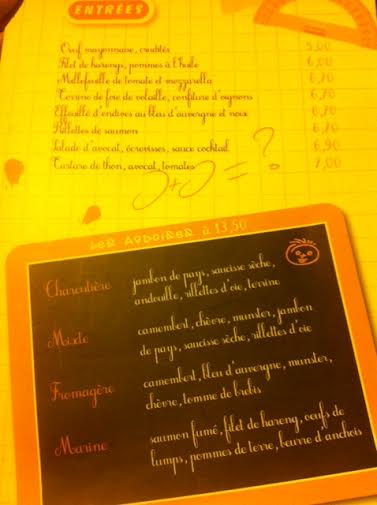 ENTRÉES
Oeuf mayonnaise, crudités 5,00
Filet de harengs, pommes à l'huile 6,00
Millefeuille de tomate et mozzarella 6,70
Terrine de foie de volaille, confiture d'oignons 6,70
Effeuillé d'endives au bleu d'auvergne et noix 6,70
Rillettes de saumon 6,70
Salade d'avocat, écrevisses, sauce cocktail 6,90
Tartare de thon, avocat, tomates 7,00
= ?
LES ARDOISES à 13,50
Charcutière jambon de pays, saucisse sèche,
andouille, rillettes d'oie, terrine
Mixte camembert, chèvre, munster, jambon
de pays, saucisse sèche, rillettes d'oie
Fromagère camembert, bleu d'auvergne, munster,
chèvre, tomme de brebis
Marine saumon fumé, filet de hareng, oeufs de
lumps, pommes de terre, beurre d'anchois